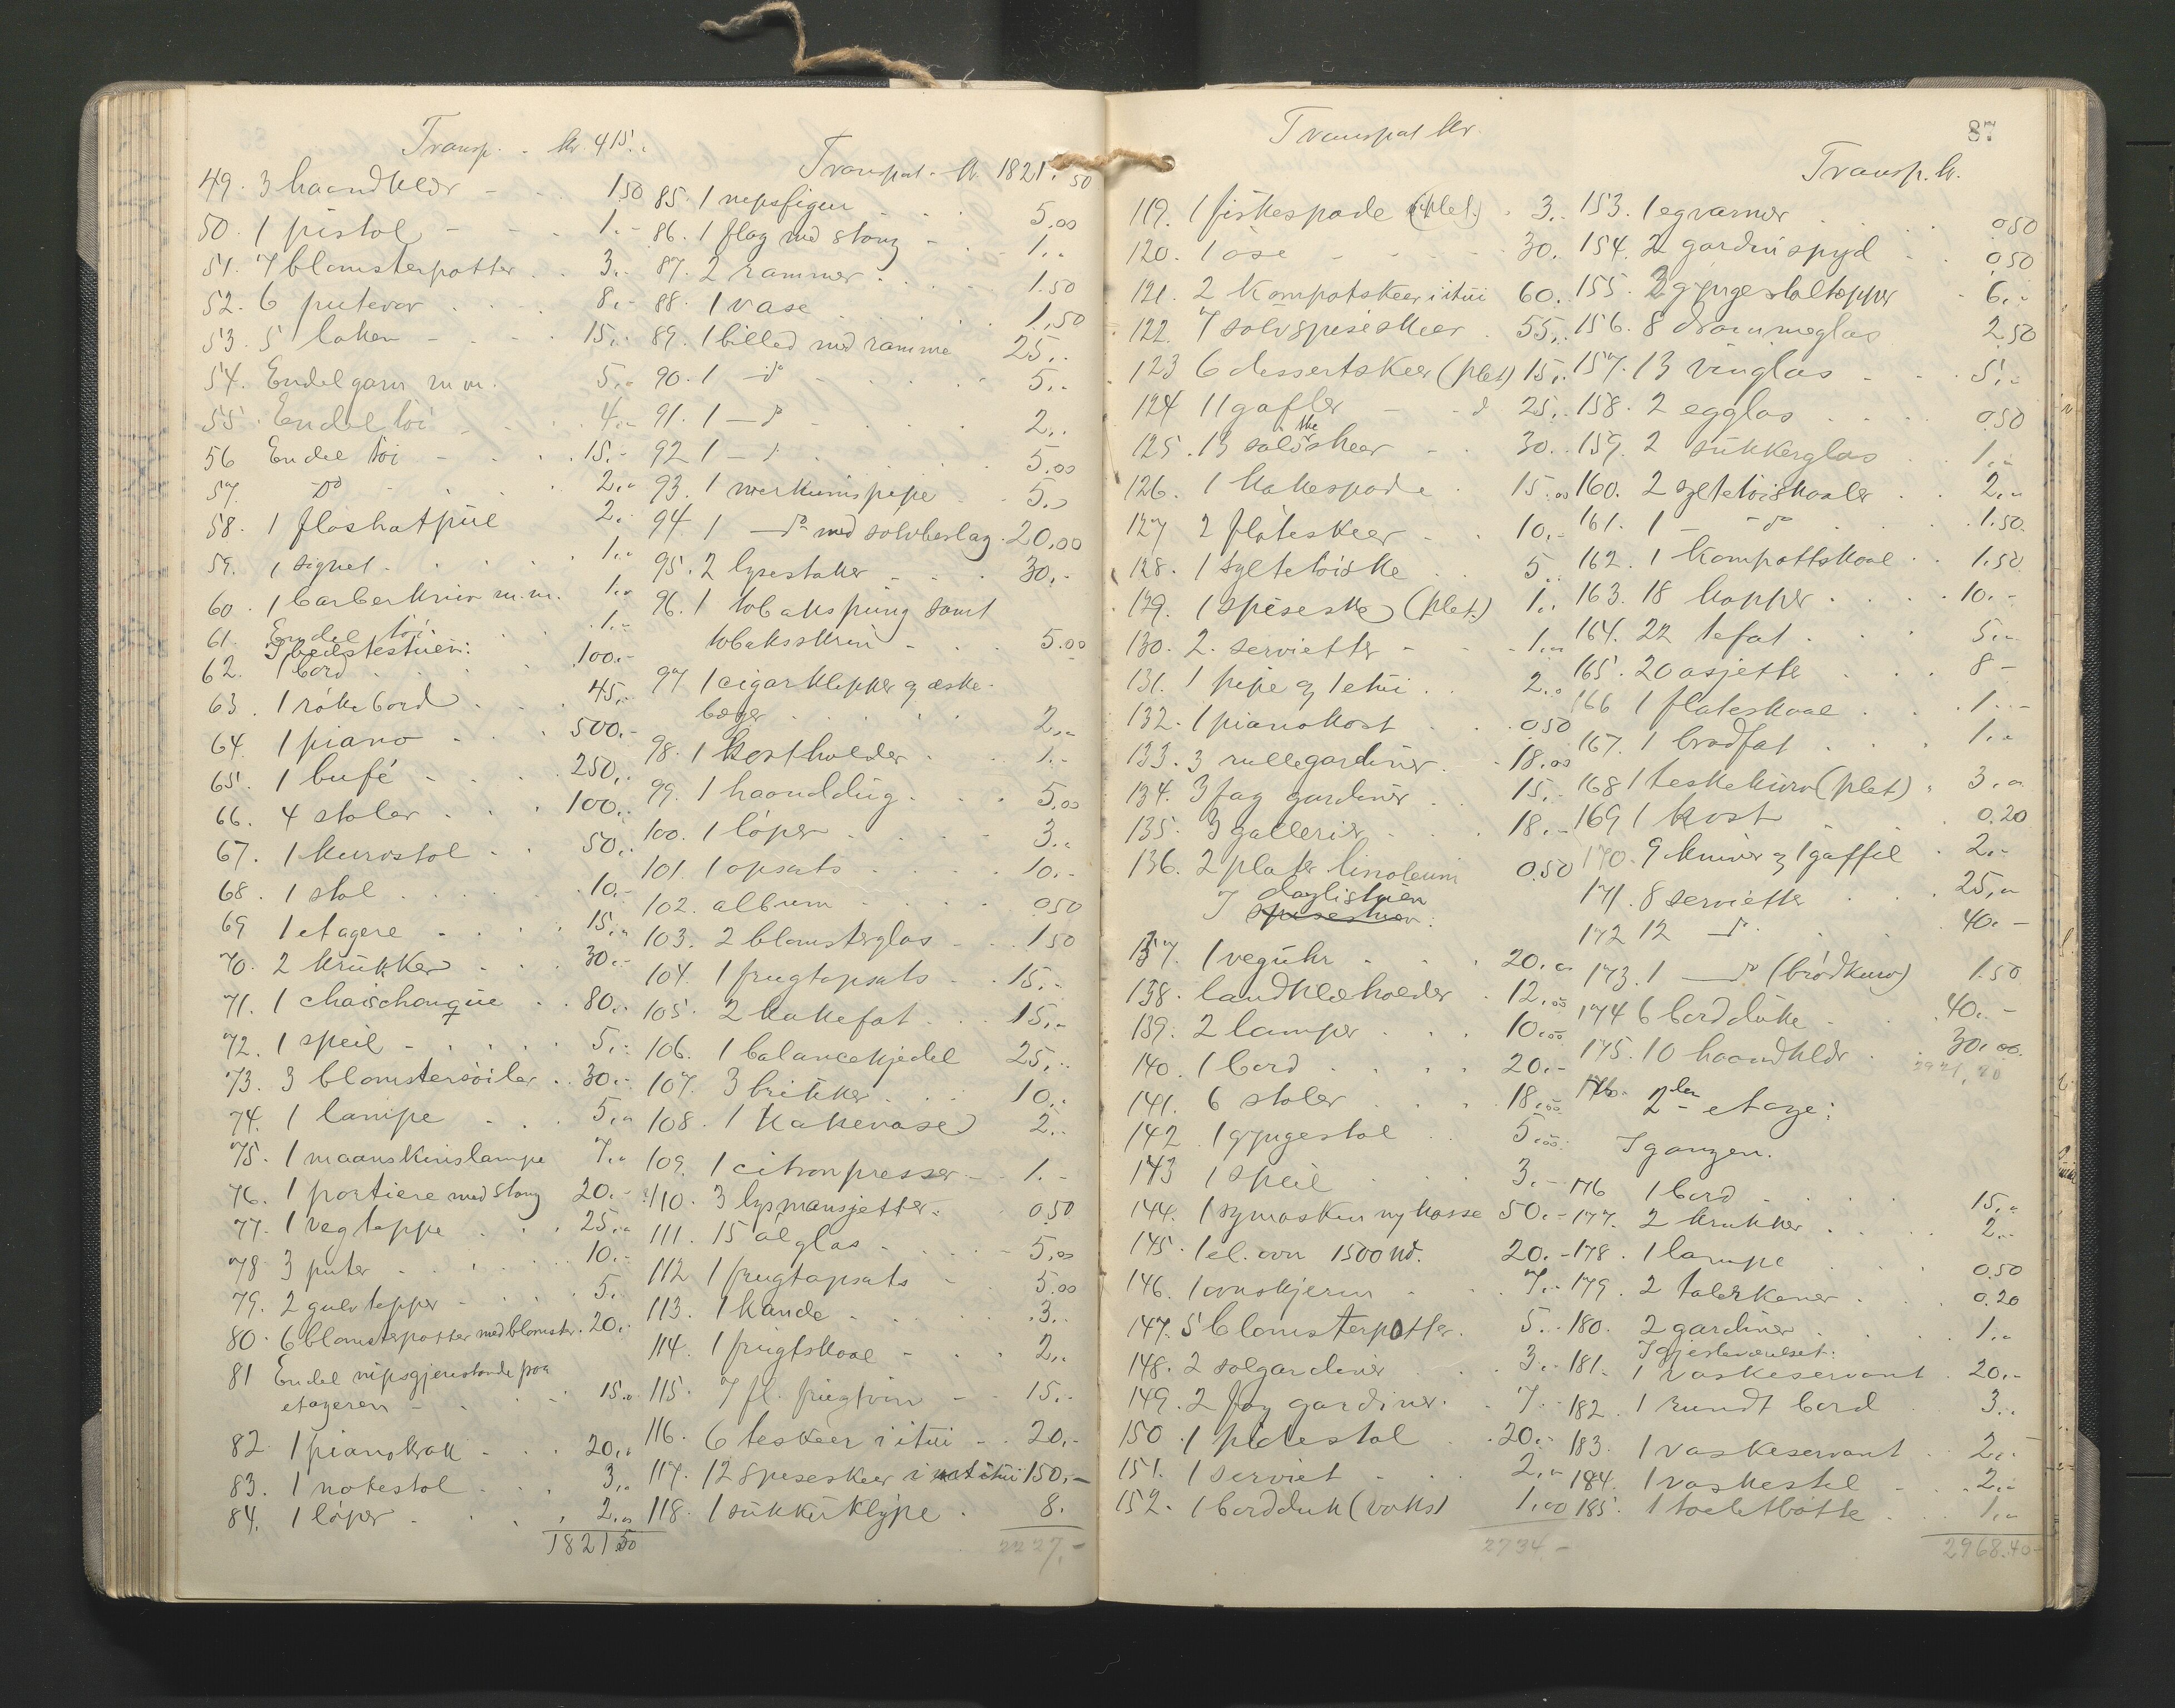 Transp. - kr. 415.-
49. 3 haandklær - - 1.50
50. 1 pistol - - - 1.-
51. 7 blomsterpotter . . 3.-
52. 6 putevar . . . 8.-
53. 5 laken - - - 15.-
54. Endel garn m.m. 5.-
55. Endel töi - . . 4.-
56 Endel töi - . . 15.-
57. Do . . 2.-
58. 1 flaskatpúl 2.-
59. 1 signet . . . 1.-
60. 1 barberkniv m.m. 1.-
61. Endel töi . . 1.-
I bedstestúen:
62. 1 bord . . . 100.-
63. 1 rökebord . . 45.-
64. 1 piano . . . 500.-
65. 1 bufé - . . 250.-
66. 4 stoler . . . 100.-
67. 1 kurvstol . . 50.-
68. 1 stol . . . 10.-
69 1 etagere . . . 15.-
70. 2 krúkker . . . 30.-
71. 1 chaiselongúe . . 80.-
72. 1 speil - . . . 5.-
73. 3 blomstersöiler . . 30.-
74. 1 lampe . . . 5.-
75. 1 maanskinslampe 7.-
76. 1 portiere med stang 20.-
77. 1 vegteppe . . . 25.-
78 3 puter . . . 10.-
79. 2 gulvtepper - . . 5.
80. 6 blomsterpotter med blomster. 20.-
81 Endel nipsgjenstande paa
etageren - . . 15.-
82. 1 pianokrak - . . 20.-
83. 1 notestol . . . 3.-
84. 1 löper . . . 2.-
1821.50
Transport. kr. 1821.50
85. 1 nipsfigur . . . 5.00
86. 1 flag med stang - . 1.-
87. 2 rammer . . . 1.50
88. 1 vase . . . 1.50
89. 1 billed med ramme 25.-
90. 1 - do . . . 5.-
91. 1 - do . . . 2.-
92 1 - do . . . 5.00
93. 1 merkumspipe . . 5.-
94 1 - do med sölvbeslag. 20.00
95. 2 lysestaker - . . 30.-
96. 1 tobakspúng samt
tobaksskrin - . . 5.00
97 1 cigarklipper og æske-
beger . . . 2.-
98. 1 kortholder . . 1.-
99. 1 haanddúg . . . 5.00
100. 1 löper . . . 3.-
101. 1 opsats . . . 10.-
102. album . . . 0.50
103. 2 blomsterglas - . . 1.50
104. 1 frugtopsats . . 15.-
105. 2 kakefat . . . 15.-
106. 1 balancekjedel 25.-
107. 3 brikker . . . 10.-
108. 1 kakevase 2.-
109. 1 citronpresser - - 1.-
110. 3 lysmansjetter . . 0.50
111. 15 ölglas . . . 5.00
112 1 frugtopsats - 5.00
113. 1 kande . . . 3.-
114. 1 frúgtskaal - . . 2.-
115. 7 fl. frúgtvin - - 15.-
116. 6 teskeer i etúi - - 20.-
117. 12 spiseskeer i etúi 150.-
118. 1 súkkerklype . 8.
2227.-
Transport kr.
119. 1 fiskespade (plet) . 3.-
120. 1 öse - - - 30.
121. 2 kompotskeer i etúi 60.
122. 7 sölvspiseskeer . 55.-
123 6 dessertskeer (plet) 15.-
124 11 gafler - - do 25.-
125. 13 sölvteskeer - . 30.
126. 1 kakespade . 15.00
127 2 flöteskeer - . 10.-
128. 1 syltetöiske . . 5
129. 1 spiseske (plet.) 1.-
130. 2. servietter - - 1.00
131. 1 pipe og 1 etúi . . 2.-
132. 1 pianokost . . 0.50
133. 3 rullegardiner . - 18.00
134. 3 fag gardiner . . 15.-
135. 3 gallerier . . . 18.-
136. 2 plater linoleum 0.50
I dagligstúen
spisestuen:
137. 1 vegúhr . . . 20.00
138. landklæholder . 12.00
139. 2 lamper . . . 10.00
140. 1 bord . . . 20.-
141. 6 stoler . . . 18.00
142 1 gyngestol . . 5.00
143 1 speil . . . 3.-
144. 1 symaskin ny kasse 50.-
145. 1 el. ovn 1500 W. 20.-
146. 1 ovnskjerm . . 7.-
147. 5 blomsterpotter. 5.-
148. 2 solgardiner . . 3.-
149. 2 fag gardiner. . 7.-
150. 1 pidestal . . 20.-
151. 1 serviet - . . 2.-
152. 1 bordduk (voks) 1.00
2734.-
87
Transp. kr.
153. 1 egvarmer . . . 0.50
154. 2 gardinspyd . . 0.50
155. 2 gyngestoltepper . 6.-
156. 8 drammeglas 2.50
157. 13 vinglas - . . 5.-
158. 2 egglas . . . 0.50
159. 2 súkkerglas . . 1.-
160. 2 syltetöiskaaler . . 2.-
161. 1 - - do . . . 1.50.
162. 1 kompottskaal . . 1.50
163. 18 kopper . . . 10.-
164. 22 tefat . . . 5.-
165. 20 asjetter . . . 8 -
166 1 flöteskaal . . . 1.-
167. 1 brödfat . . . 1.-
168 1 teskekúrv (plet) . 3.-
169 1 kost . . 0.20
170. 9 kniver og 1 gaffel . 2.-
171. 8 servietter . . . 25.-
172 12 - do . . 40.-
173. 1 - do (brödkurv) 1.50
174 6 bordduke . . 40.-
175. 10 haandklær . . 30.00.
2den etage:
I gangen.
176 1 bord . . . 15.-
177. 2 krukker . . . 2.-
178. 1 lampe . . . 0.50
179. 2 talerkener . . 0.20
180. 2 gardiner . . . 1.-
I gjesteværelset:
181. 1 vaskeservant . 20.-
182. 1 rundt bord . 3.-
183. 1 vaskeservant . . 2.-
184. 1 vaskestel . . 2.-
185. 1 toiletbötte . . 1.-
2968.40